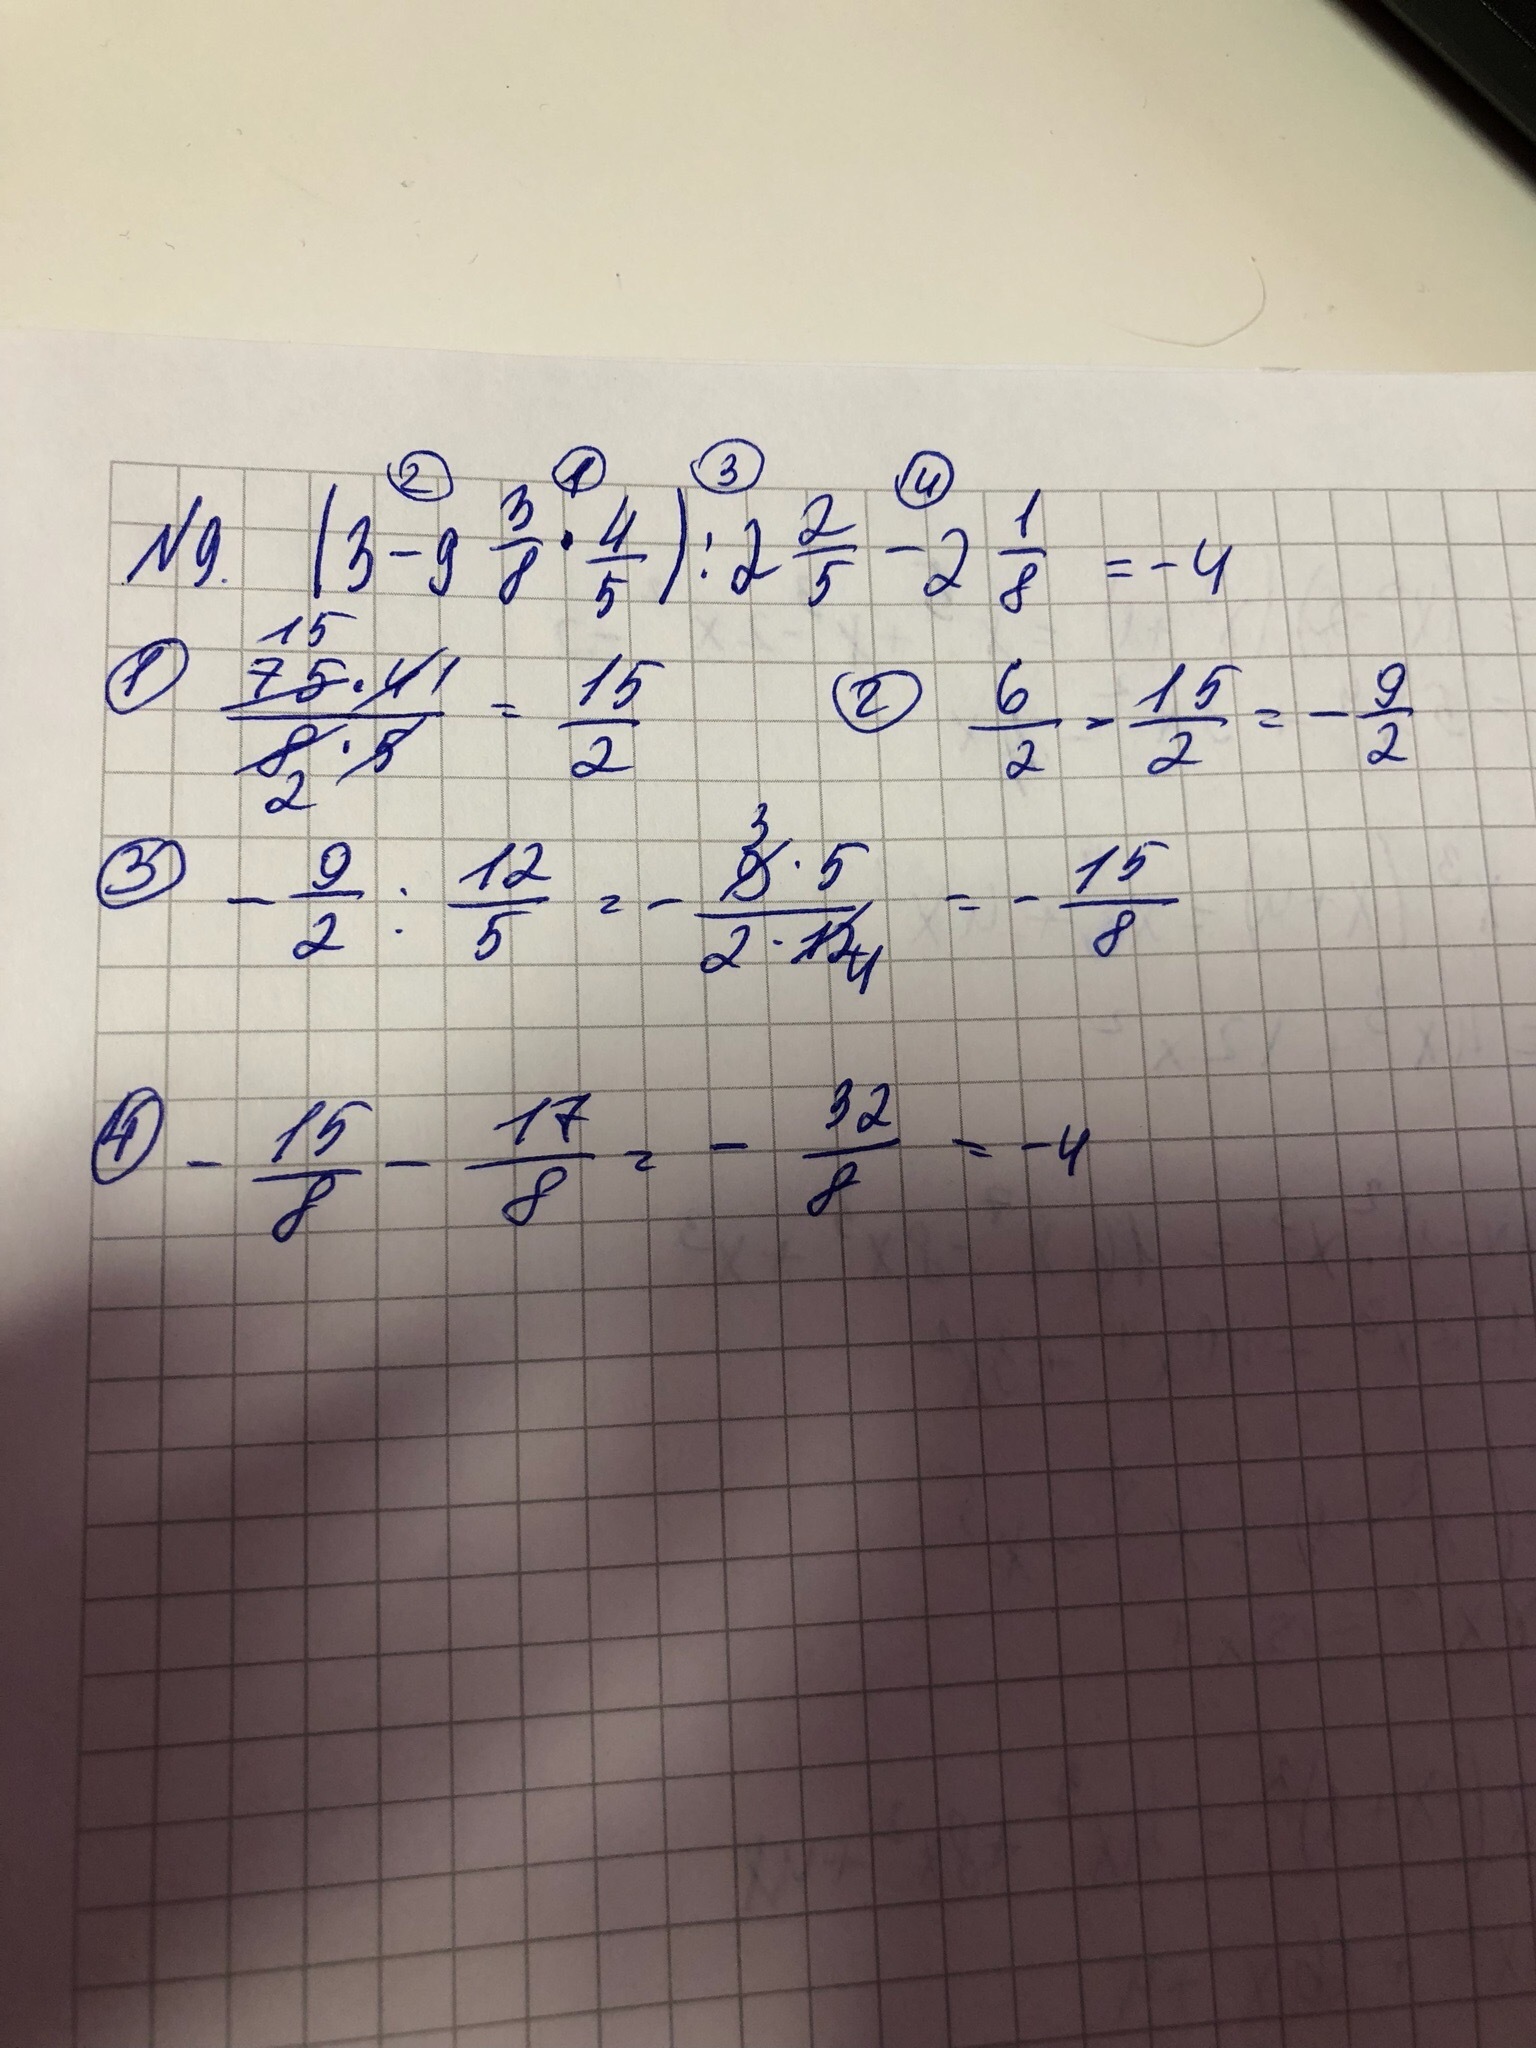 ② ① ③ ④
№9. (3 - 9 3/8 · 4/5) : 2 2/5 - 2 1/8 = -4
① 15 75 · 4 1 / 8 · 5 2 = 15/2 ② 6/2 - 15/2 = - 9/2
③ - 9/2 : 12/5 = - 3 9 · 5 / 2 · 12 4 = - 15/8
④ - 15/8 - 17/8 = - 32/8 = -4